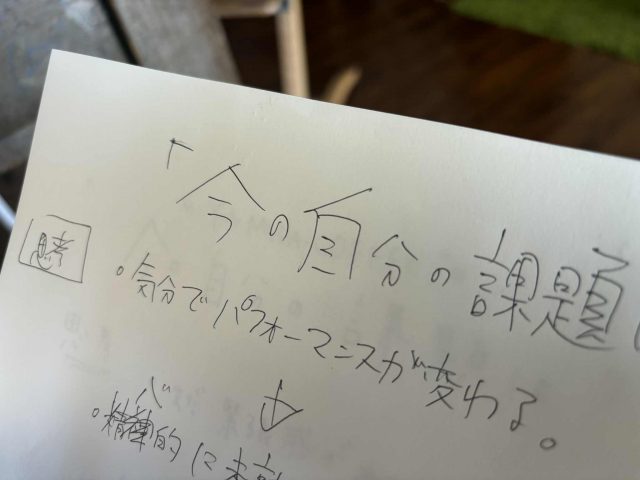 「今の自分の課題
思考
。気分でパフォーマンスが変わる。
。精神的に未